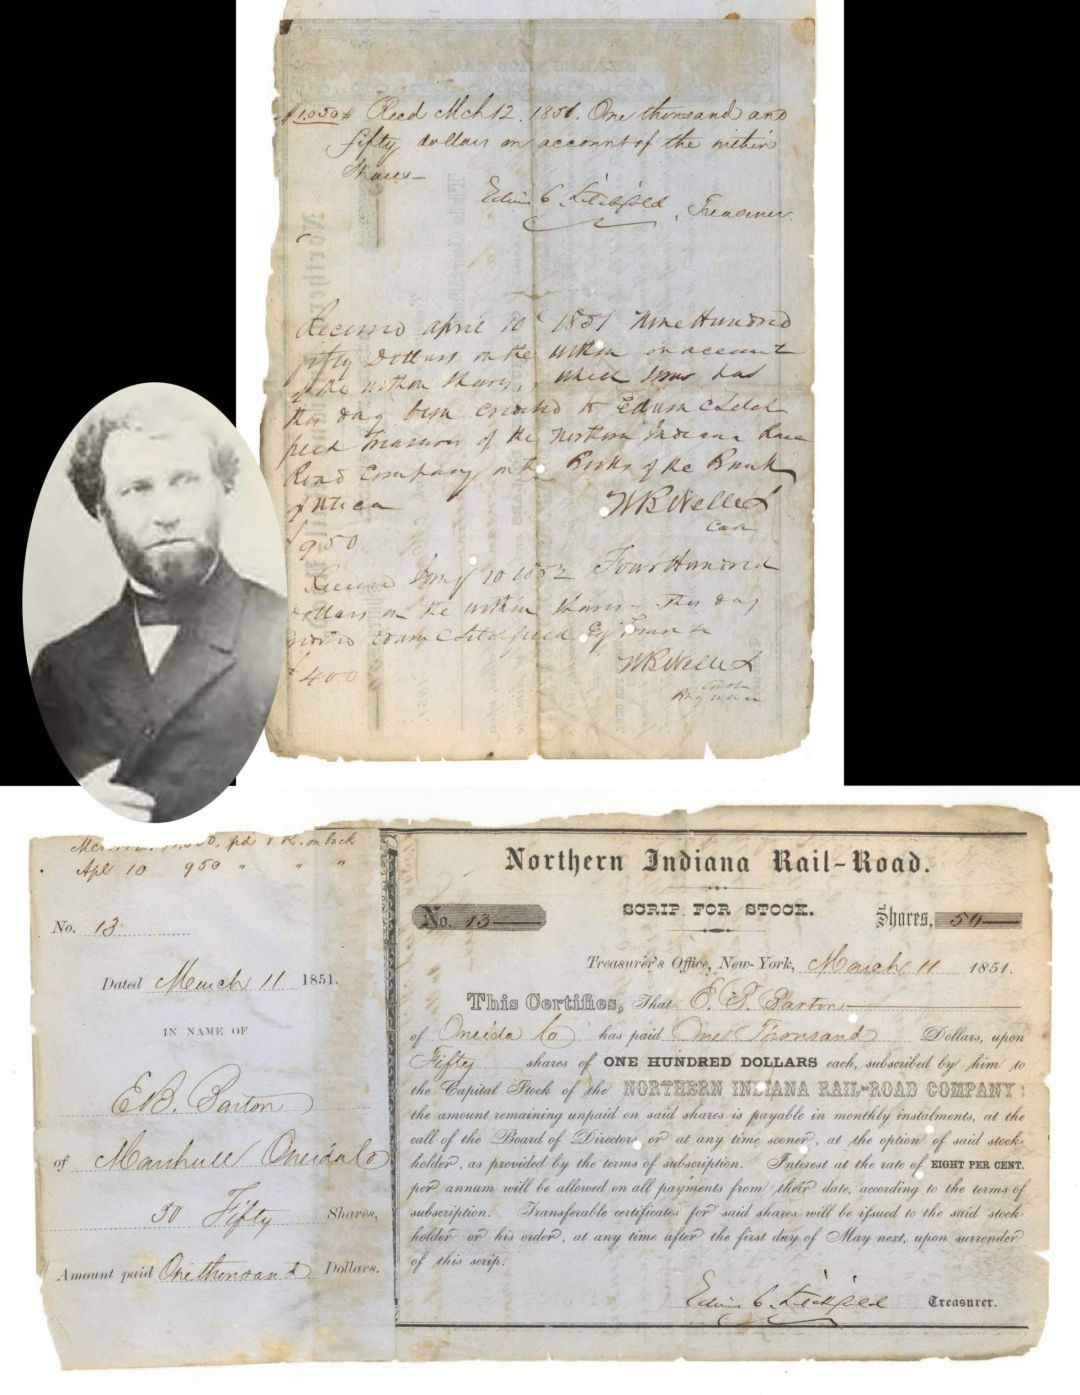 $1.050 Recd Mch 12. 1851. One thousand and
fifty dollars on account of the within
Shares—
Edwin C. Litchfield, Treasurer.
Received April 10th 1851 Nine Hundred
fifty Dollars on the within on account
of the within Shares, which sum has
this day been credited to Edwin C Litch
field Treasurer of the Northern Indiana Rail
Road Company on the Books of the Bank
of Utica
$950
W B Welles
Cash
Received 10 1852 Four Hundred
Dollars on the within Shares— this day
credited Edwin C Litchfield Esq
$400
W B Welles
Cash
pd on back
Apl 10 950 " " "
No. 13
Dated March 11 1851.
IN NAME OF
E B. Barton
of Marshall Oneida Co
50 Fifty Shares,
Amount paid One thousand Dollars.
Northern Indiana Rail-Road.
SCRIP FOR STOCK.
No. 13 Shares, 50
Treasurer's Office, New-York, March 11 1851.
This Certifies, That E. B. Barton
of Oneida Co has paid One Thousand Dollars, upon
Fifty shares of ONE HUNDRED DOLLARS each, subscribed by him to
the Capital Stock of the NORTHERN INDIANA RAIL-ROAD COMPANY:
the amount remaining unpaid on said shares is payable in monthly instalments, at the
call of the Board of Directors or at any time sooner, at the option of said stock-
holder, as provided by the terms of subscription. Interest at the rate of EIGHT PER CENT.
per annum will be allowed on all payments from their date, according to the terms of
subscription. Transferable certificates for said shares will be issued to the said stock-
holder or his order, at any time after the first day of May next, upon surrender
of this scrip.
Edwin C. Litchfield Treasurer.